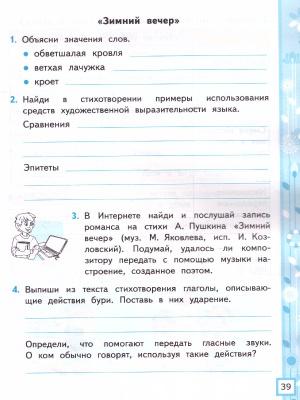 «Зимний вечер»
1. Объясни значения слов.
• обветшалая кровля
• ветхая лачужка
• кроет
2. Найди в стихотворении примеры использования
средств художественной выразительности языка.
Сравнения
Эпитеты
3. В Интернете найди и послушай запись
романса на стихи А. Пушкина «Зимний
вечер» (муз. М. Яковлева, исп. И. Коз-
ловский). Подумай, удалось ли компо-
зитору передать с помощью музыки на-
строение, созданное поэтом.
4. Выпиши из текста стихотворения глаголы, описываю-
щие действия бури. Поставь в них ударение.
Определи, что помогают передать гласные звуки.
О ком обычно говорят, используя такие действия?
39